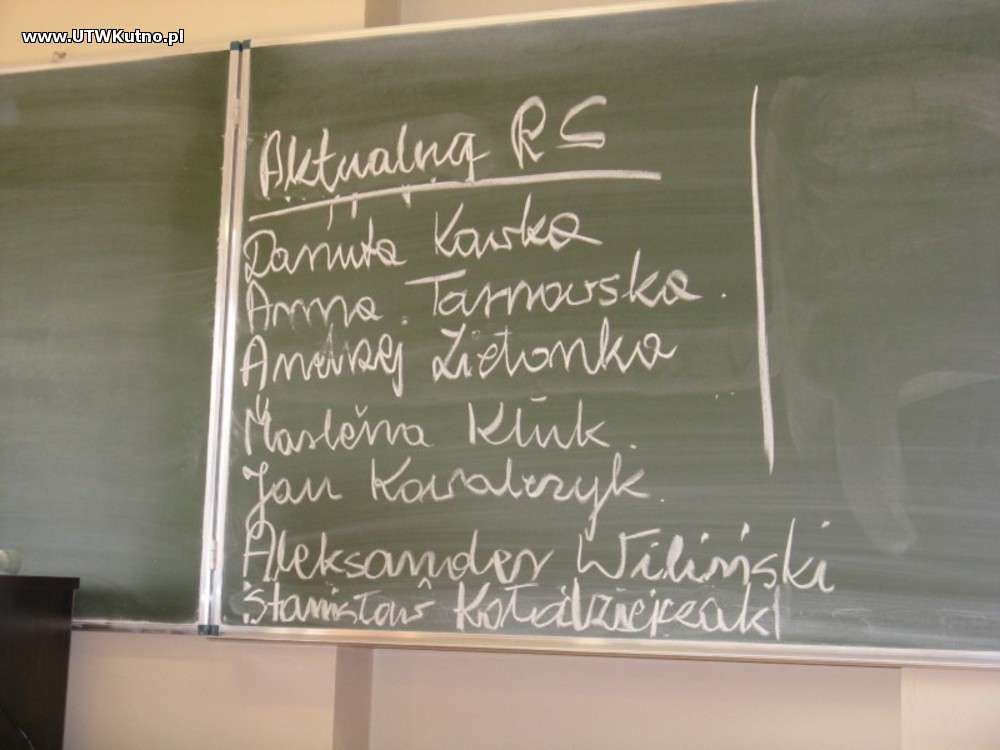 www.UTWKutno.pl
Aktualna RS
Danuta Kawka
Anna Tarnowska.
Andrzej Zielonka
Marlena Kluk.
Jan Kowalczyk.
Aleksander Wiliński
Stanisław Kołodziejczak